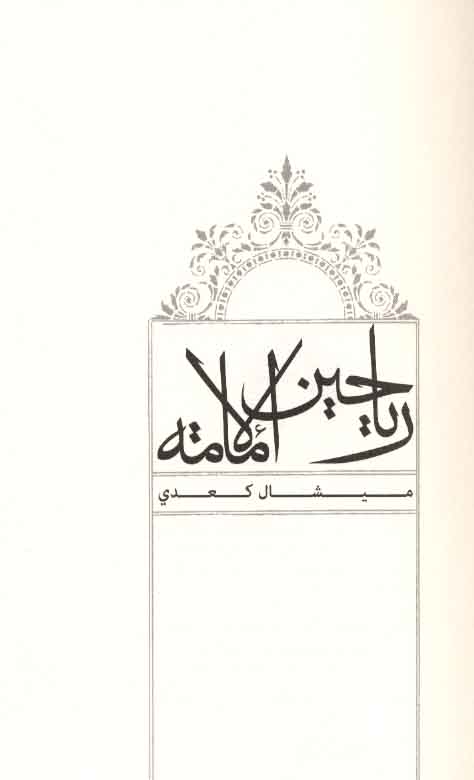 رياحين الإمامة
ميشال كعدي